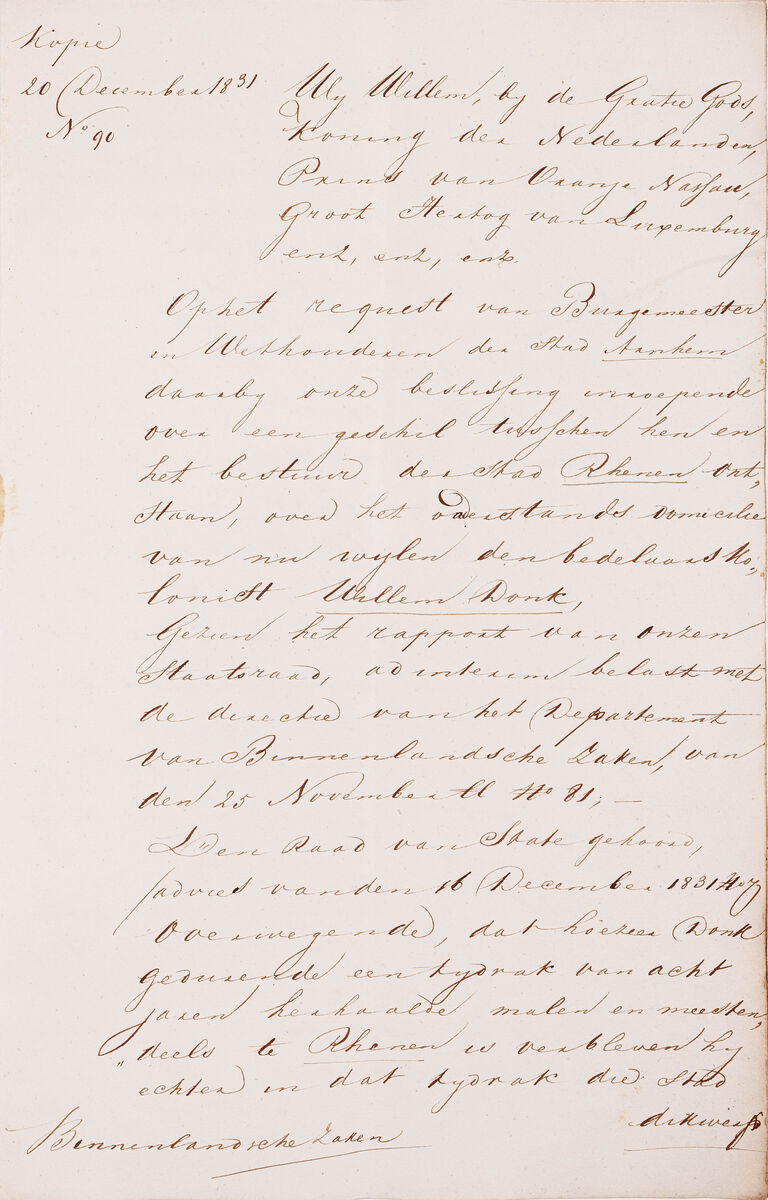 Kopie
20 December 1831
No 90
Wy Willem, by de Gratie Gods,
Koning der Nederlanden,
Prins van Oranje Nassau,
Groot Hertog van Luxemburg
enz, enz, enz.
Op het request van Burgemeester
en Wethouderen der Stad Arnhem
daarby onze beslissing inroepende
over een geschil tusschen hen en
het bestuur der Stad Rhenen ont„
staan, over het onderstands domicilie
van nu wylen den bedelaars ko„
lonist Willem Donk,
Gezien het rapport van onzen
Staatsraad, ad interim belast met
de directie van het Departement
van Binnenlandsche Zaken, van
den 25 November ll No 81; —
Den Raad van State gehoord,
/advies van den 16 December 1831 No 7
Overwegende, dat hoezeer Donk
gedurende een tydvak van acht
jaren herhaalde malen en meesten„
„deels te Rhenen is verbleven hy
echter in dat tydvak die Stad
dikwerf
Binnenlandsche Zaken